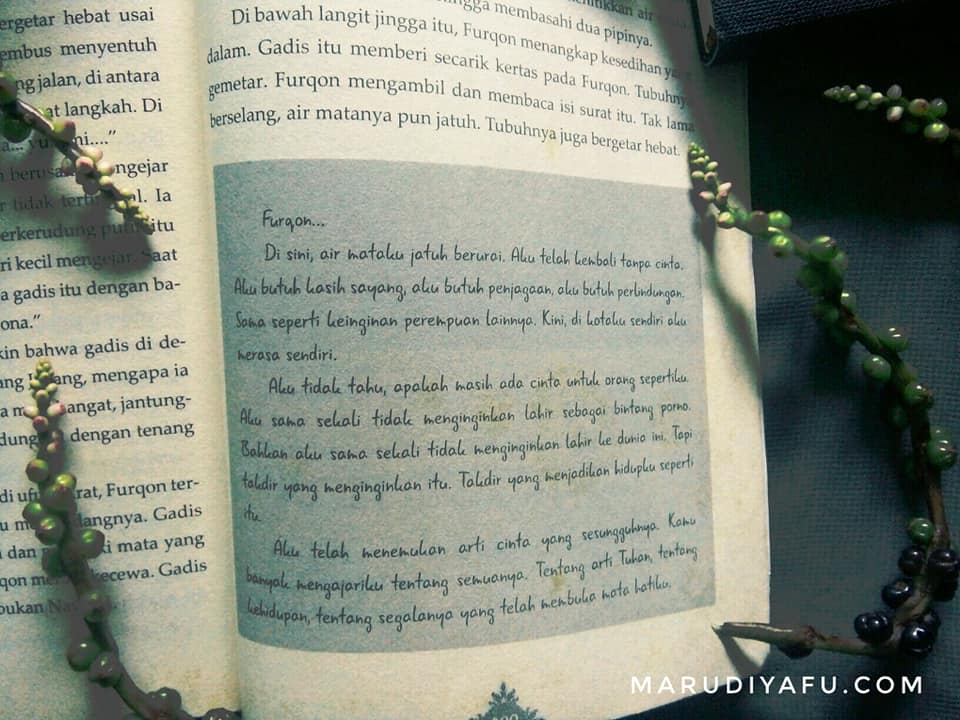 ergetar hebat usai
embus menyentuh
ng jalan, di antara
at langkah. Di
ngejar
Ia
erkerudung putih itu
ri kecil mengejar. Saat
a gadis itu dengan ba-
ona."
kin bahwa gadis di de-
ang, mengapa ia
angat, jantung-
dengan tenang
di ufuk barat, Furqon ter-
langnya. Gadis
dan mata yang
qon kecewa. Gadis
bukan
ngga membasahi dua pipinya.
Di bawah langit jingga itu, Furqon menangkap kesedihan
dalam. Gadis itu memberi secarik kertas pada Furqon. Tubuhnya
gemetar. Furqon mengambil dan membaca isi surat itu. Tak lama
berselang, air matanya pun jatuh. Tubuhnya juga bergetar hebat.
Furqon...
Di sini, air mataku jatuh berurai. Aku telah kembali tanpa cinta.
Aku butuh kasih sayang, aku butuh penjagaan, aku butuh perlindungan.
Sama seperti keinginan perempuan lainnya. Kini, di kotaku sendiri aku
merasa sendiri.
Aku tidak tahu, apakah masih ada cinta untuk orang sepertiku.
Aku sama sekali tidak menginginkan lahir sebagai bintang porno.
Bahkan aku sama sekali tidak menginginkan lahir ke dunia ini. Tapi
takdir yang menginginkan itu. Takdir yang menjadikan hidupku seperti
itu.
Aku telah menemukan arti cinta yang sesungguhnya. Kamu
banyak mengajariku tentang semuanya. Tentang arti Tuhan, tentang
kehidupan, tentang segalanya yang telah membuka mata hatiku.
MARUDIYAFU.COM